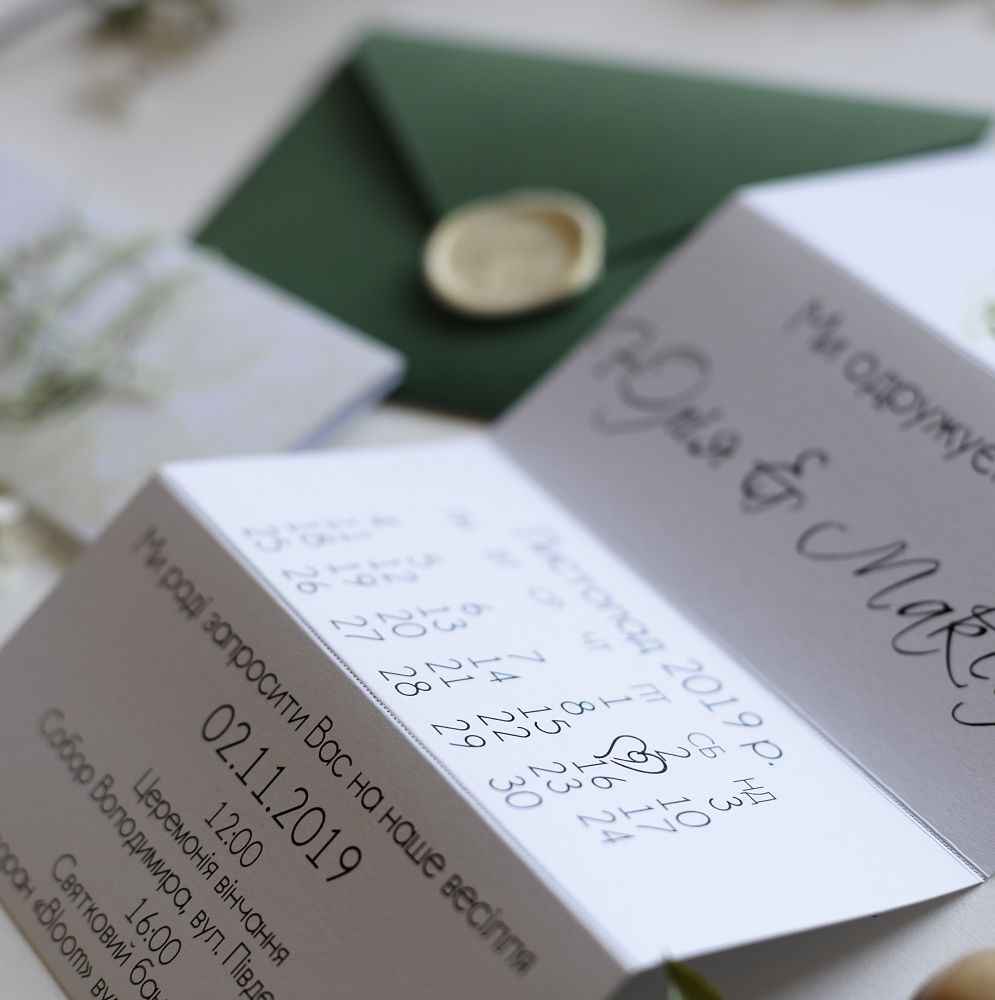 Ми одружує
Юлія & Макс
Листопад 2019 р.
ЧТ ПТ СБ НД
1 2 3
4 5 6 7 8 9 10
11 12 13 14 15 16 17
18 19 20 21 22 23 24
25 26 27 28 29 30
Ми раді запросити Вас на наше весілля
02.11.2019
12:00
Церемонія вінчання
Собор Володимира, вул. Півде
16:00
Святковий бан
оран «Bloom» ву